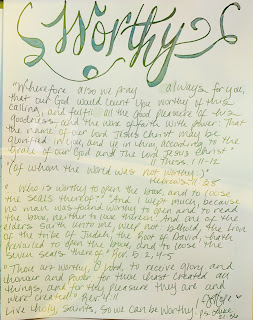 Worthy
"Wherefore also we pray always for you,
that our God would count you worthy of this
calling, and fulfil all the good pleasure of his
goodness and the work of faith with power: That
the name of our Lord Jesus Christ may be
glorified in you, and ye in him, according to the
grace of our God and the Lord Jesus Christ."
II Thess. 1:11-12
"(of whom the world was not worthy:)"
Hebrews 11:38
"Who is worthy to open the book, and to loose
the seals thereof?" "And I wept much, because
no man was found worthy to open and to read
the book, neither to look thereon. And one of the
elders saith unto me, weep not: behold, the Lion
of the tribe of Juda, the Root of David, hath
prevailed to open the book, and to loose the
seven seals thereof." Rev. 5:2, 4-5
"Thou art worthy, O Lord, to receive glory and
honour and power: for thou hast created all
things, and for thy pleasure they are and
were created." Rev 4:11
Live Holy, Saints, so we can be worthy.